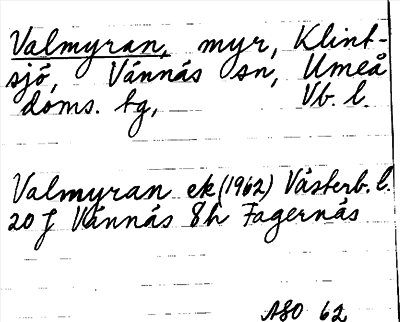 Valmyran, myr, Klint-
sjö, Vännäs sn, Umeå
doms. tg, Vb. l.
Valmyran ek (1962) Västerb. l.
20 J Vännäs 8h Fagernäs
ASO 62